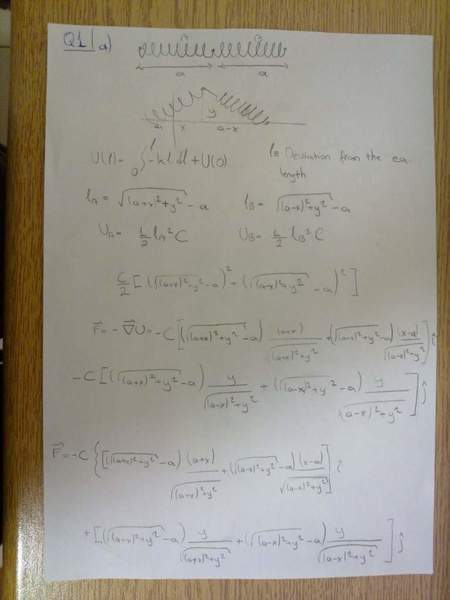 Q1 a)
a a
y
x a-x
U(l)= ∫₀ˡ -kl dl + U(0) l= Deviation from the eq. length
l_A = √((a+x)²+y²) - a l_B = √((a-x)²+y²) - a
U_A = ½ l_A² C U_B = ½ l_B² C
C/2 [(√((a+x)²+y²) - a)² + (√((a-x)²+y²) - a)²]
F⃗ = -∇⃗U = -C [(√((a+x)²+y²) - a) (a+x)/√((a+x)²+y²) + (√((a-x)²+y²) - a) (x-a)/√((a-x)²+y²)] î
-C [(√((a+x)²+y²) - a) y/√((a+x)²+y²) + (√((a-x)²+y²) - a) y/√((a-x)²+y²)] ĵ
F⃗ = -C {[(√((a+x)²+y²) - a) (a+x)/√((a+x)²+y²) + (√((a-x)²+y²) - a) (x-a)/√((a-x)²+y²)] î
+ [(√((a+x)²+y²) - a) y/√((a+x)²+y²) + (√((a-x)²+y²) - a) y/√((a-x)²+y²)] ĵ